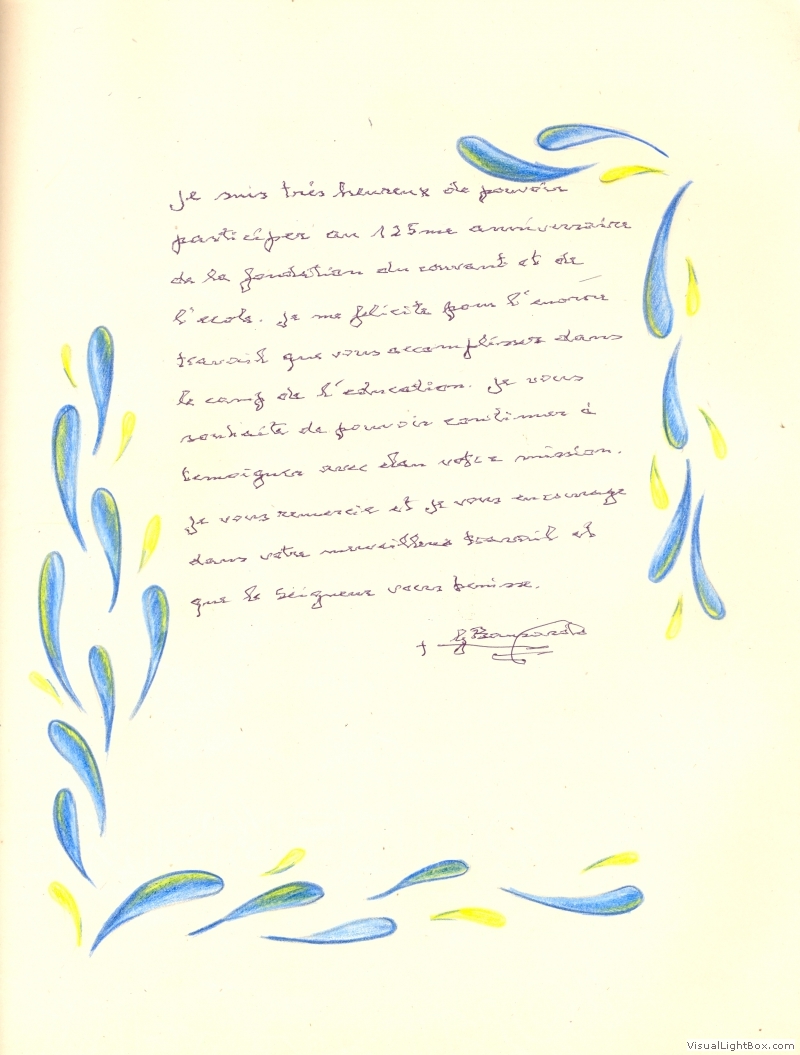 Je suis très heureux de pouvoir
participer au 125me anniversaire
de la fondation du couvent et de
l'ecole. Je me felicite pour l'enorme
travail que vous accomplissez dans
le camp de l'education. Je vous
souhaite de pouvoir continuer à
temoigner avec élan votre mission.
Je vous remercie et je vous encourage
dans votre merveilleux travail et
que le Seigneur vous benisse.
VisualLightBox.com